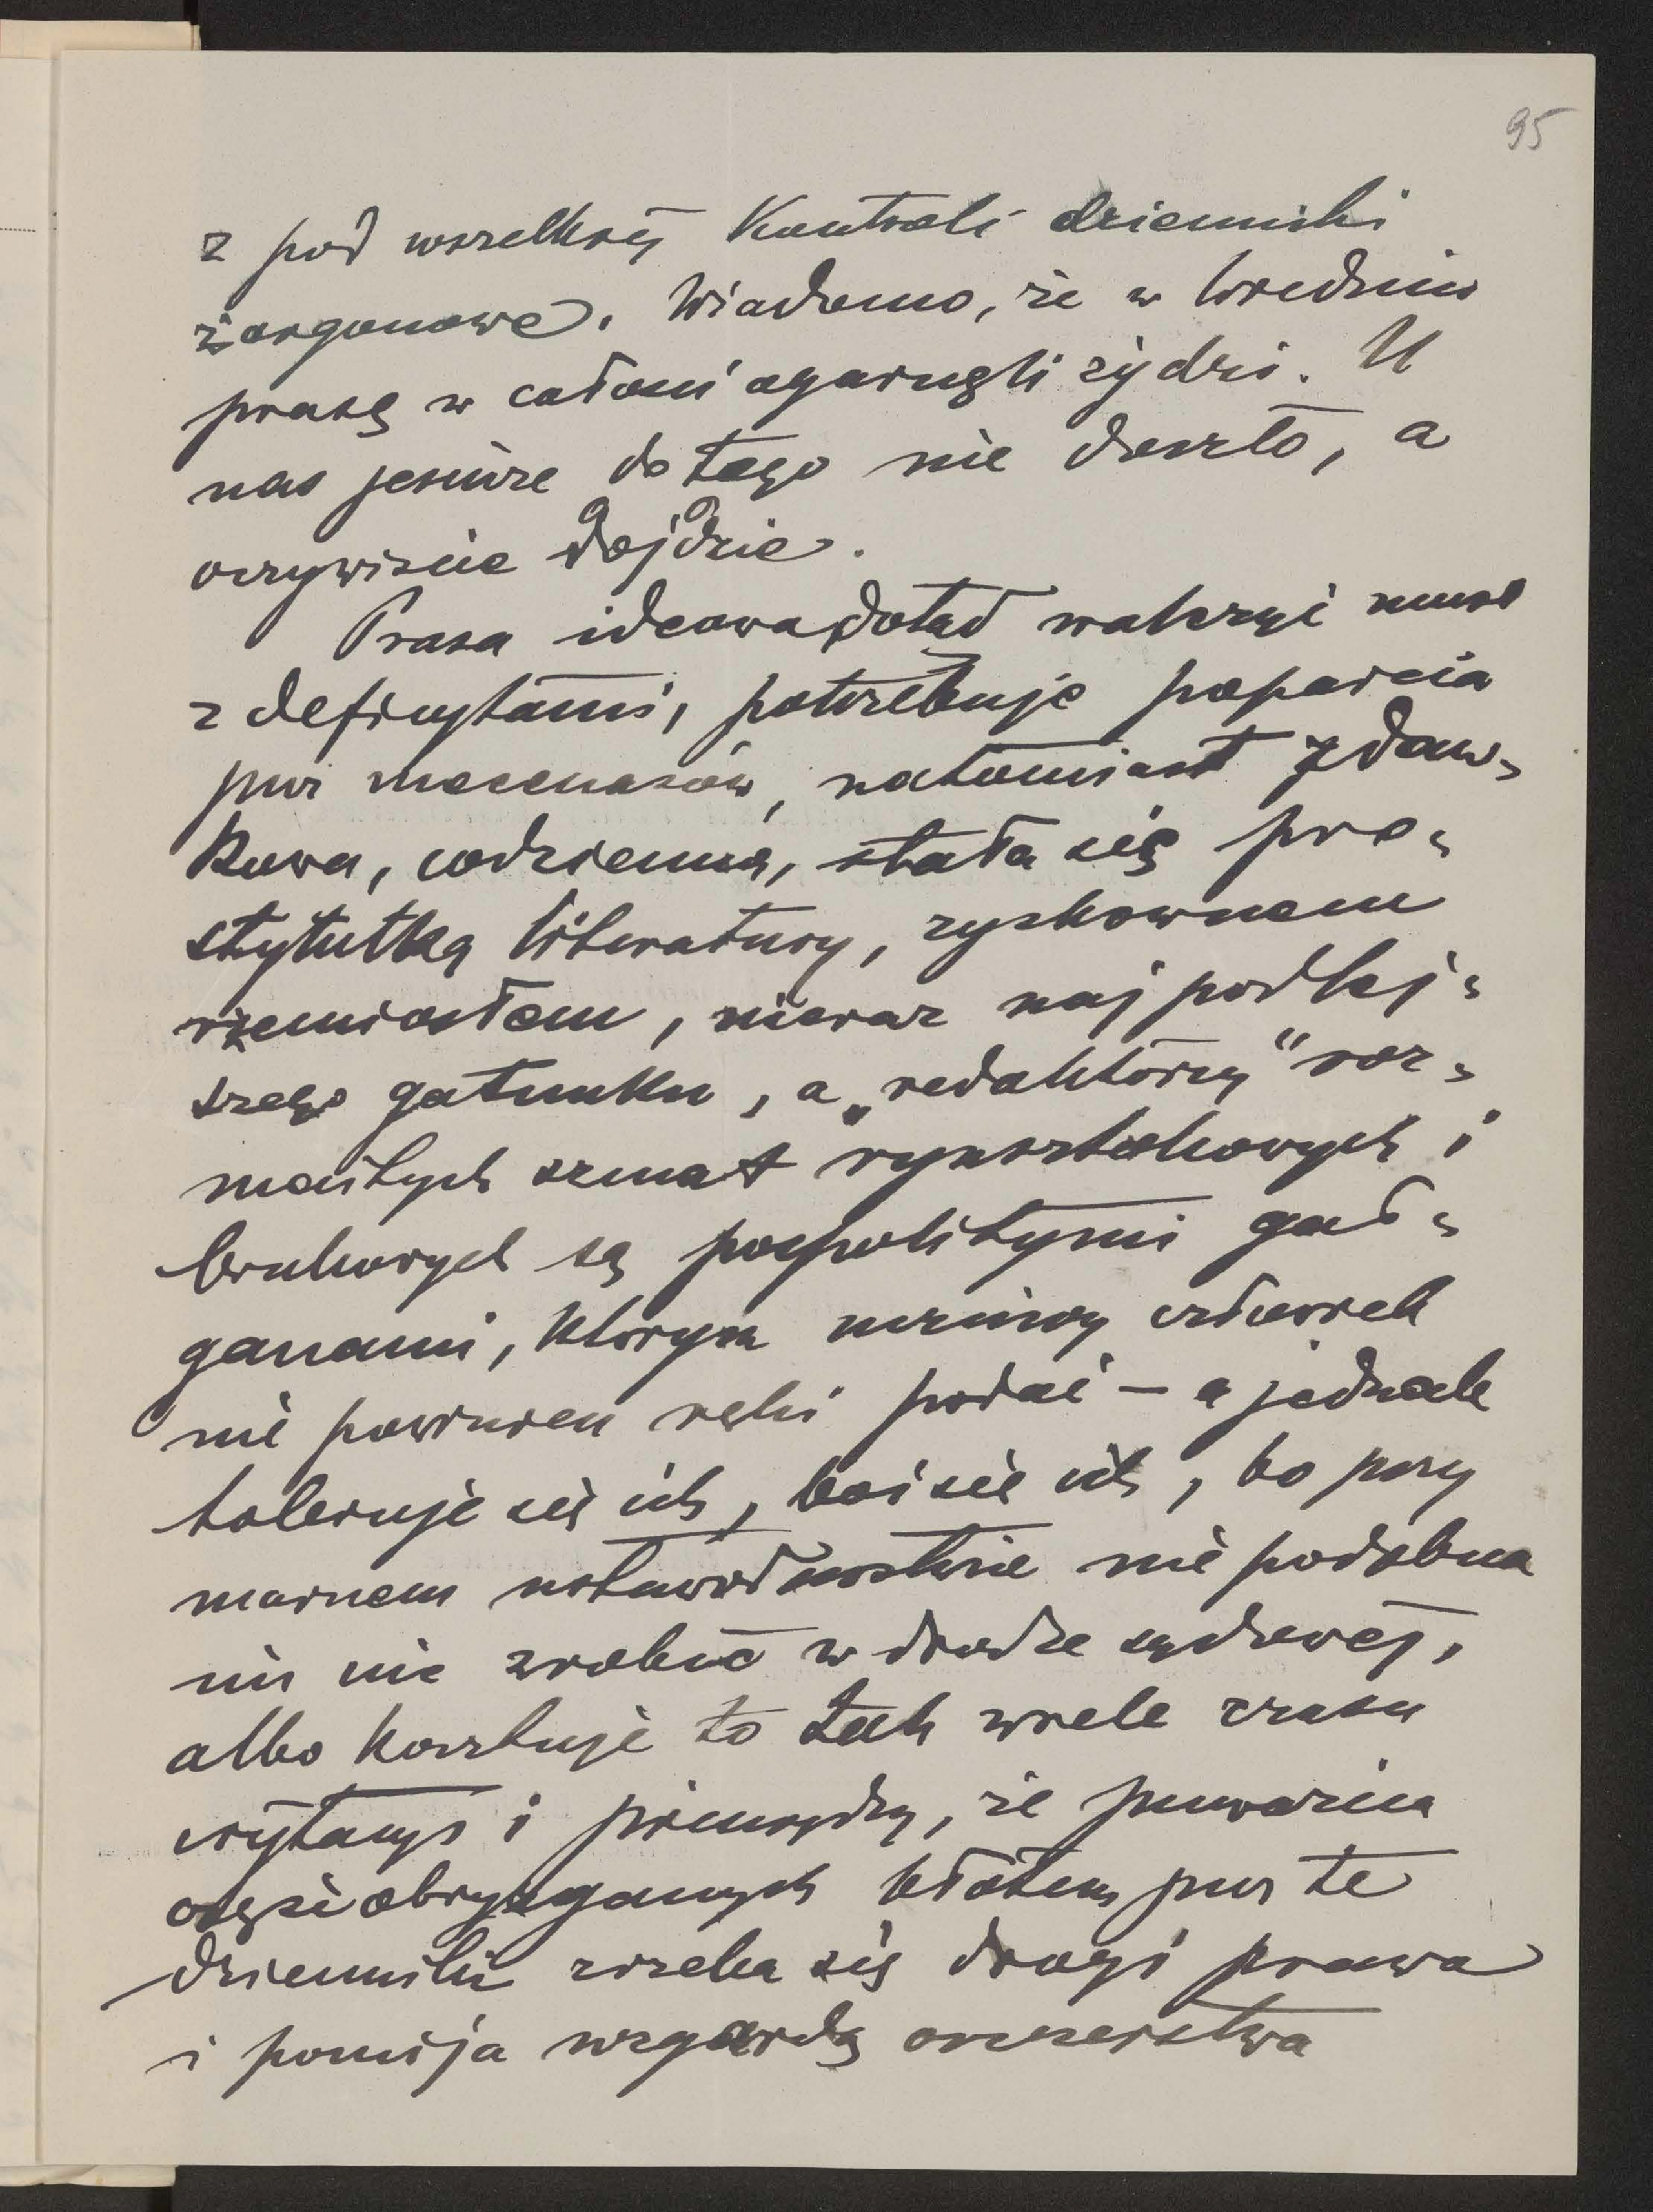 95
z pod wszelkiej kontroli dzienniki
żargonowe. Wiadomo, że w Wiedniu
prasę w całości ogarnęli żydzi. U
nas jeszcze do tego nie doszło, a
oczywiście dojdzie.
Prasa ideowa dotąd walczyć musi
z deficytami, potrzebuje poparcia
przez mecenasów, natomiast zdaw=
kowa, codzienna, stała się pro=
stytutką literatury, zyskownem
rzemiosłem, nieraz najpodlej=
szego gatunku, a „redaktorzy" roz=
maitych szmat rynsztokowych i
brukowych są pospolitymi gał=
ganami, którym uczciwy człowiek
nie powinien ręki podać — a jednak
toleruje się ich, boi się ich, bo przy
marnem ustawodawstwie nie podobna
im nic zrobić w drodze sądowej,
albo kosztuje to tak wiele czasu
irytacyi i pieniędzy, że przeważna
część obryzganych błotem przez te
dzienniki zrzeka się drogi prawa
i pomija wzgardą oszczerstwa